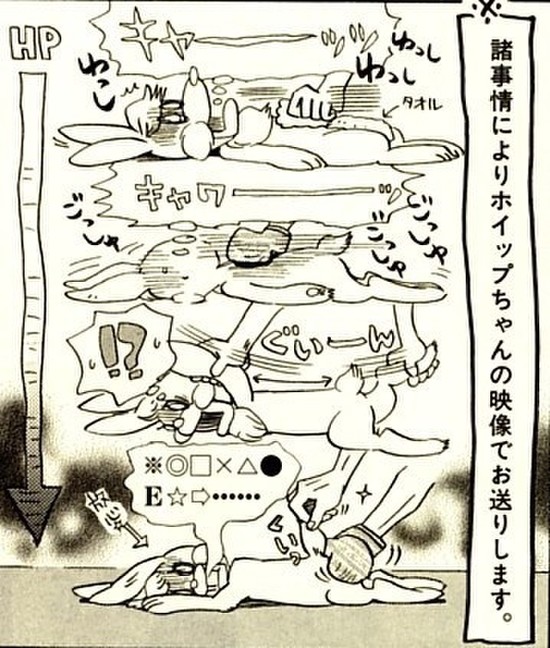 ※
諸事情によりホイップちゃんの映像でお送りします。
HP
キャーーッッ
わっし
わっし
わっし
タオル
キャワーー
ごっしゅ
ごっしゅ
ごっしゅ
!?
ぐいーん
※◎□×△●
E☆⇨……
ぐいっ